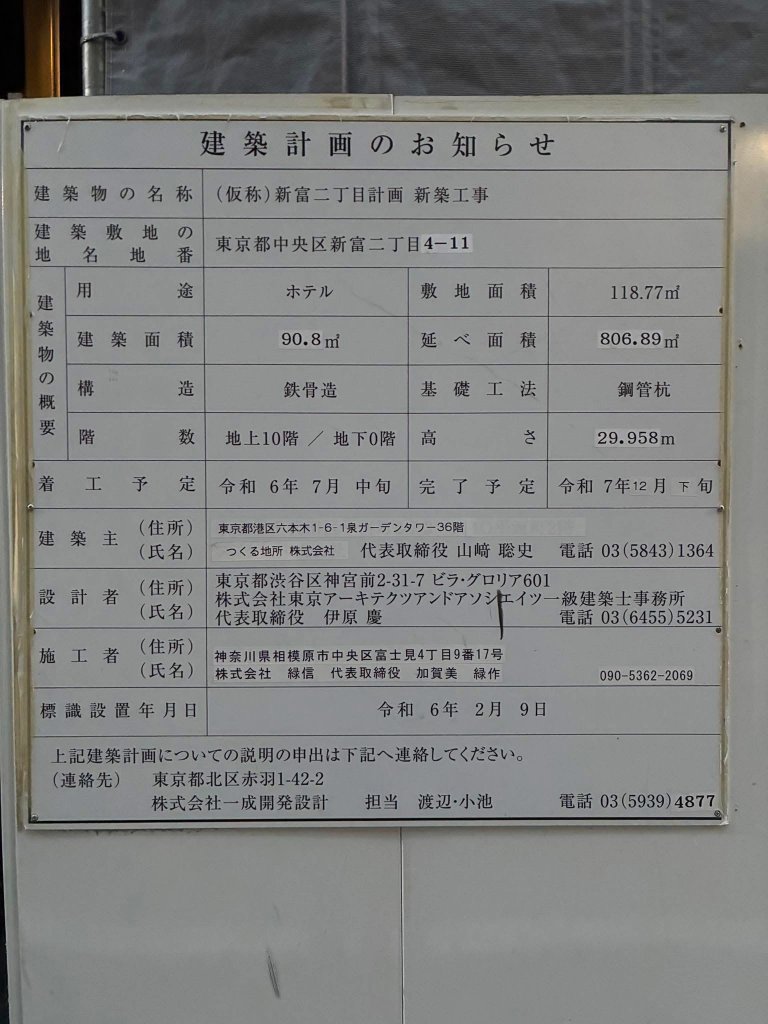 建築計画のお知らせ
建築物の名称 (仮称)新富二丁目計画 新築工事
建築敷地の地名地番 東京都中央区新富二丁目4-11
建築物の概要
用途 ホテル 敷地面積 118.77㎡
建築面積 90.8㎡ 延べ面積 806.89㎡
構造 鉄骨造 基礎工法 鋼管杭
階数 地上10階 / 地下0階 高さ 29.958m
着工予定 令和 6年 7月 中旬 完了予定 令和 7年12月 下旬
建築主 (住所) 東京都港区六本木1-6-1泉ガーデンタワー36階
(氏名) つくる地所 株式会社 代表取締役 山﨑 聡史 電話 03(5843)1364
設計者 (住所) 東京都渋谷区神宮前2-31-7 ビラ・グロリア601
(氏名) 株式会社東京アーキテクツアンドアソシエイツ一級建築士事務所
代表取締役 伊原 慶 電話 03(6455)5231
施工者 (住所) 神奈川県相模原市中央区富士見4丁目9番17号
(氏名) 株式会社 緑信 代表取締役 加賀美 緑作 090-5362-2069
標識設置年月日 令和 6年 2月 9日
上記建築計画についての説明の申出は下記へ連絡してください。
(連絡先) 東京都北区赤羽1-42-2
株式会社一成開発設計 担当 渡辺・小池 電話 03(5939)4877